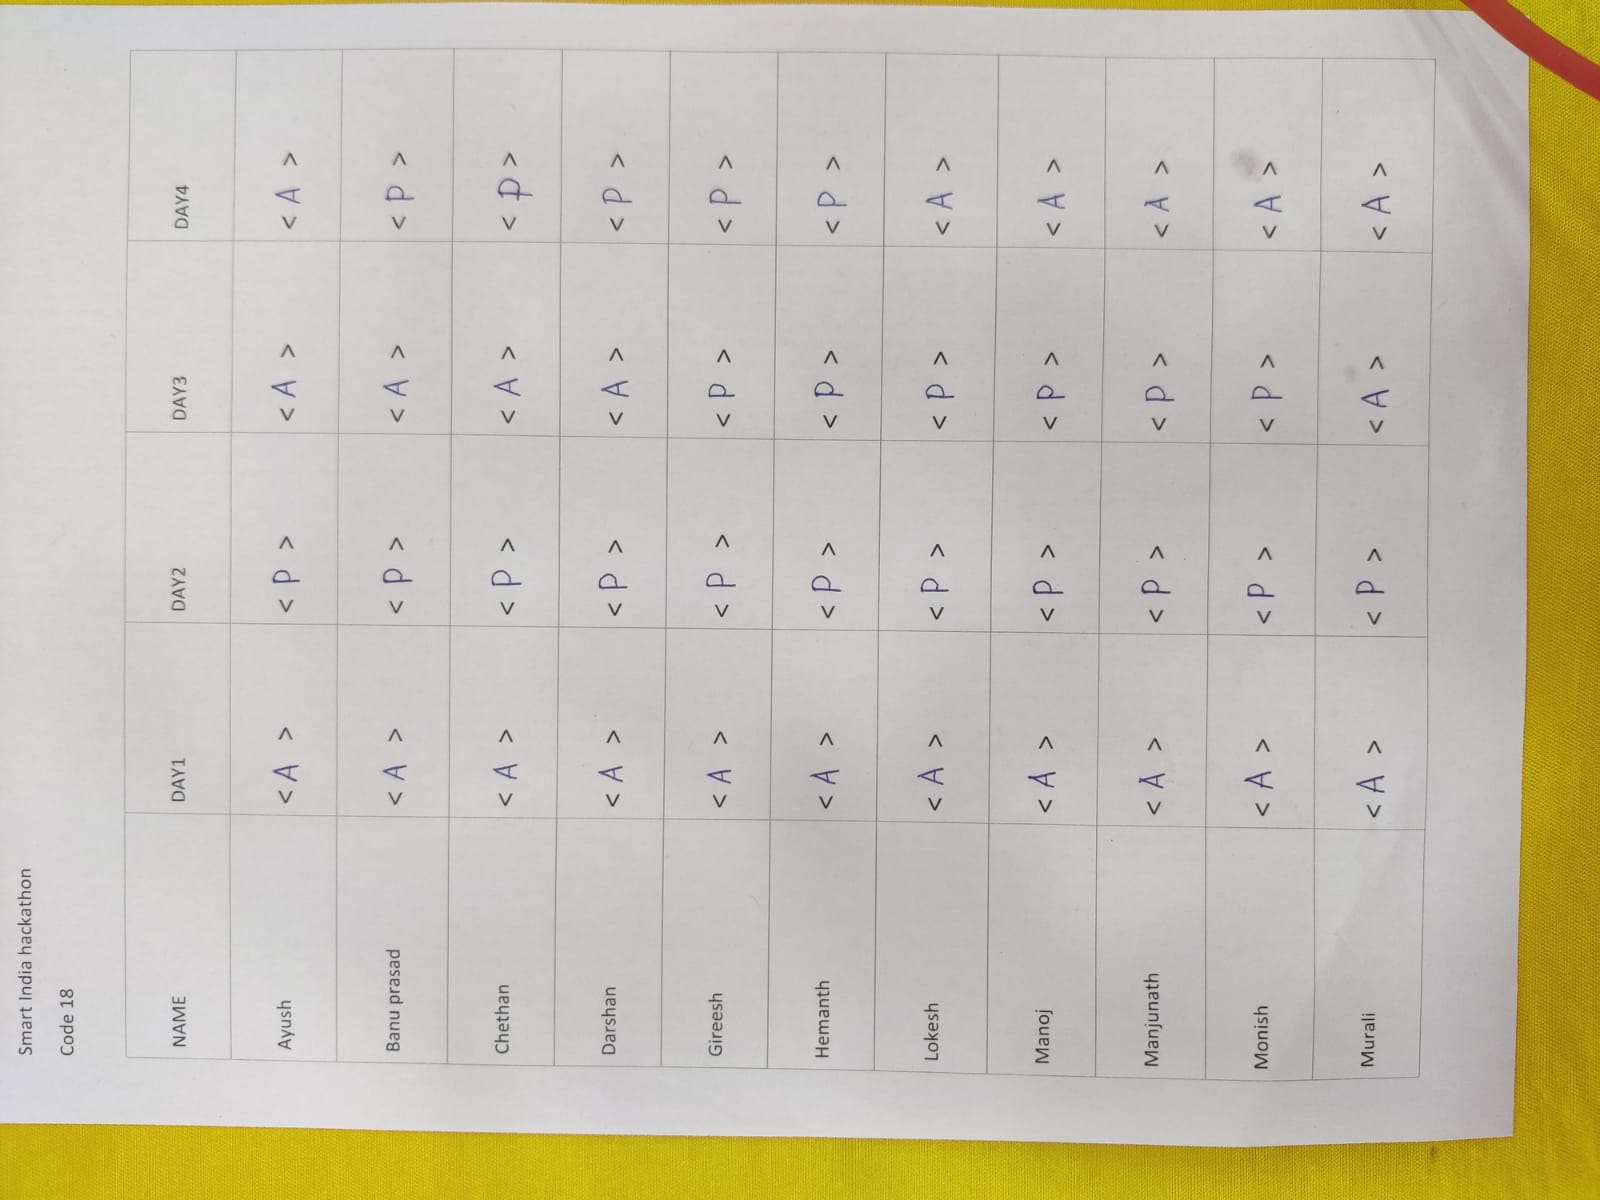 Smart India hackathon
Code 18
NAME DAY1 DAY2 DAY3 DAY4
Ayush < A > < P > < A > < A >
Banu prasad < A > < P > < A > < P >
Chethan < A > < P > < A > < P >
Darshan < A > < P > < A > < P >
Gireesh < A > < P > < P > < P >
Hemanth < A > < P > < P > < P >
Lokesh < A > < P > < P > < A >
Manoj < A > < P > < P > < A >
Manjunath < A > < P > < P > < A >
Monish < A > < P > < P > < A >
Murali < A > < P > < A > < A >